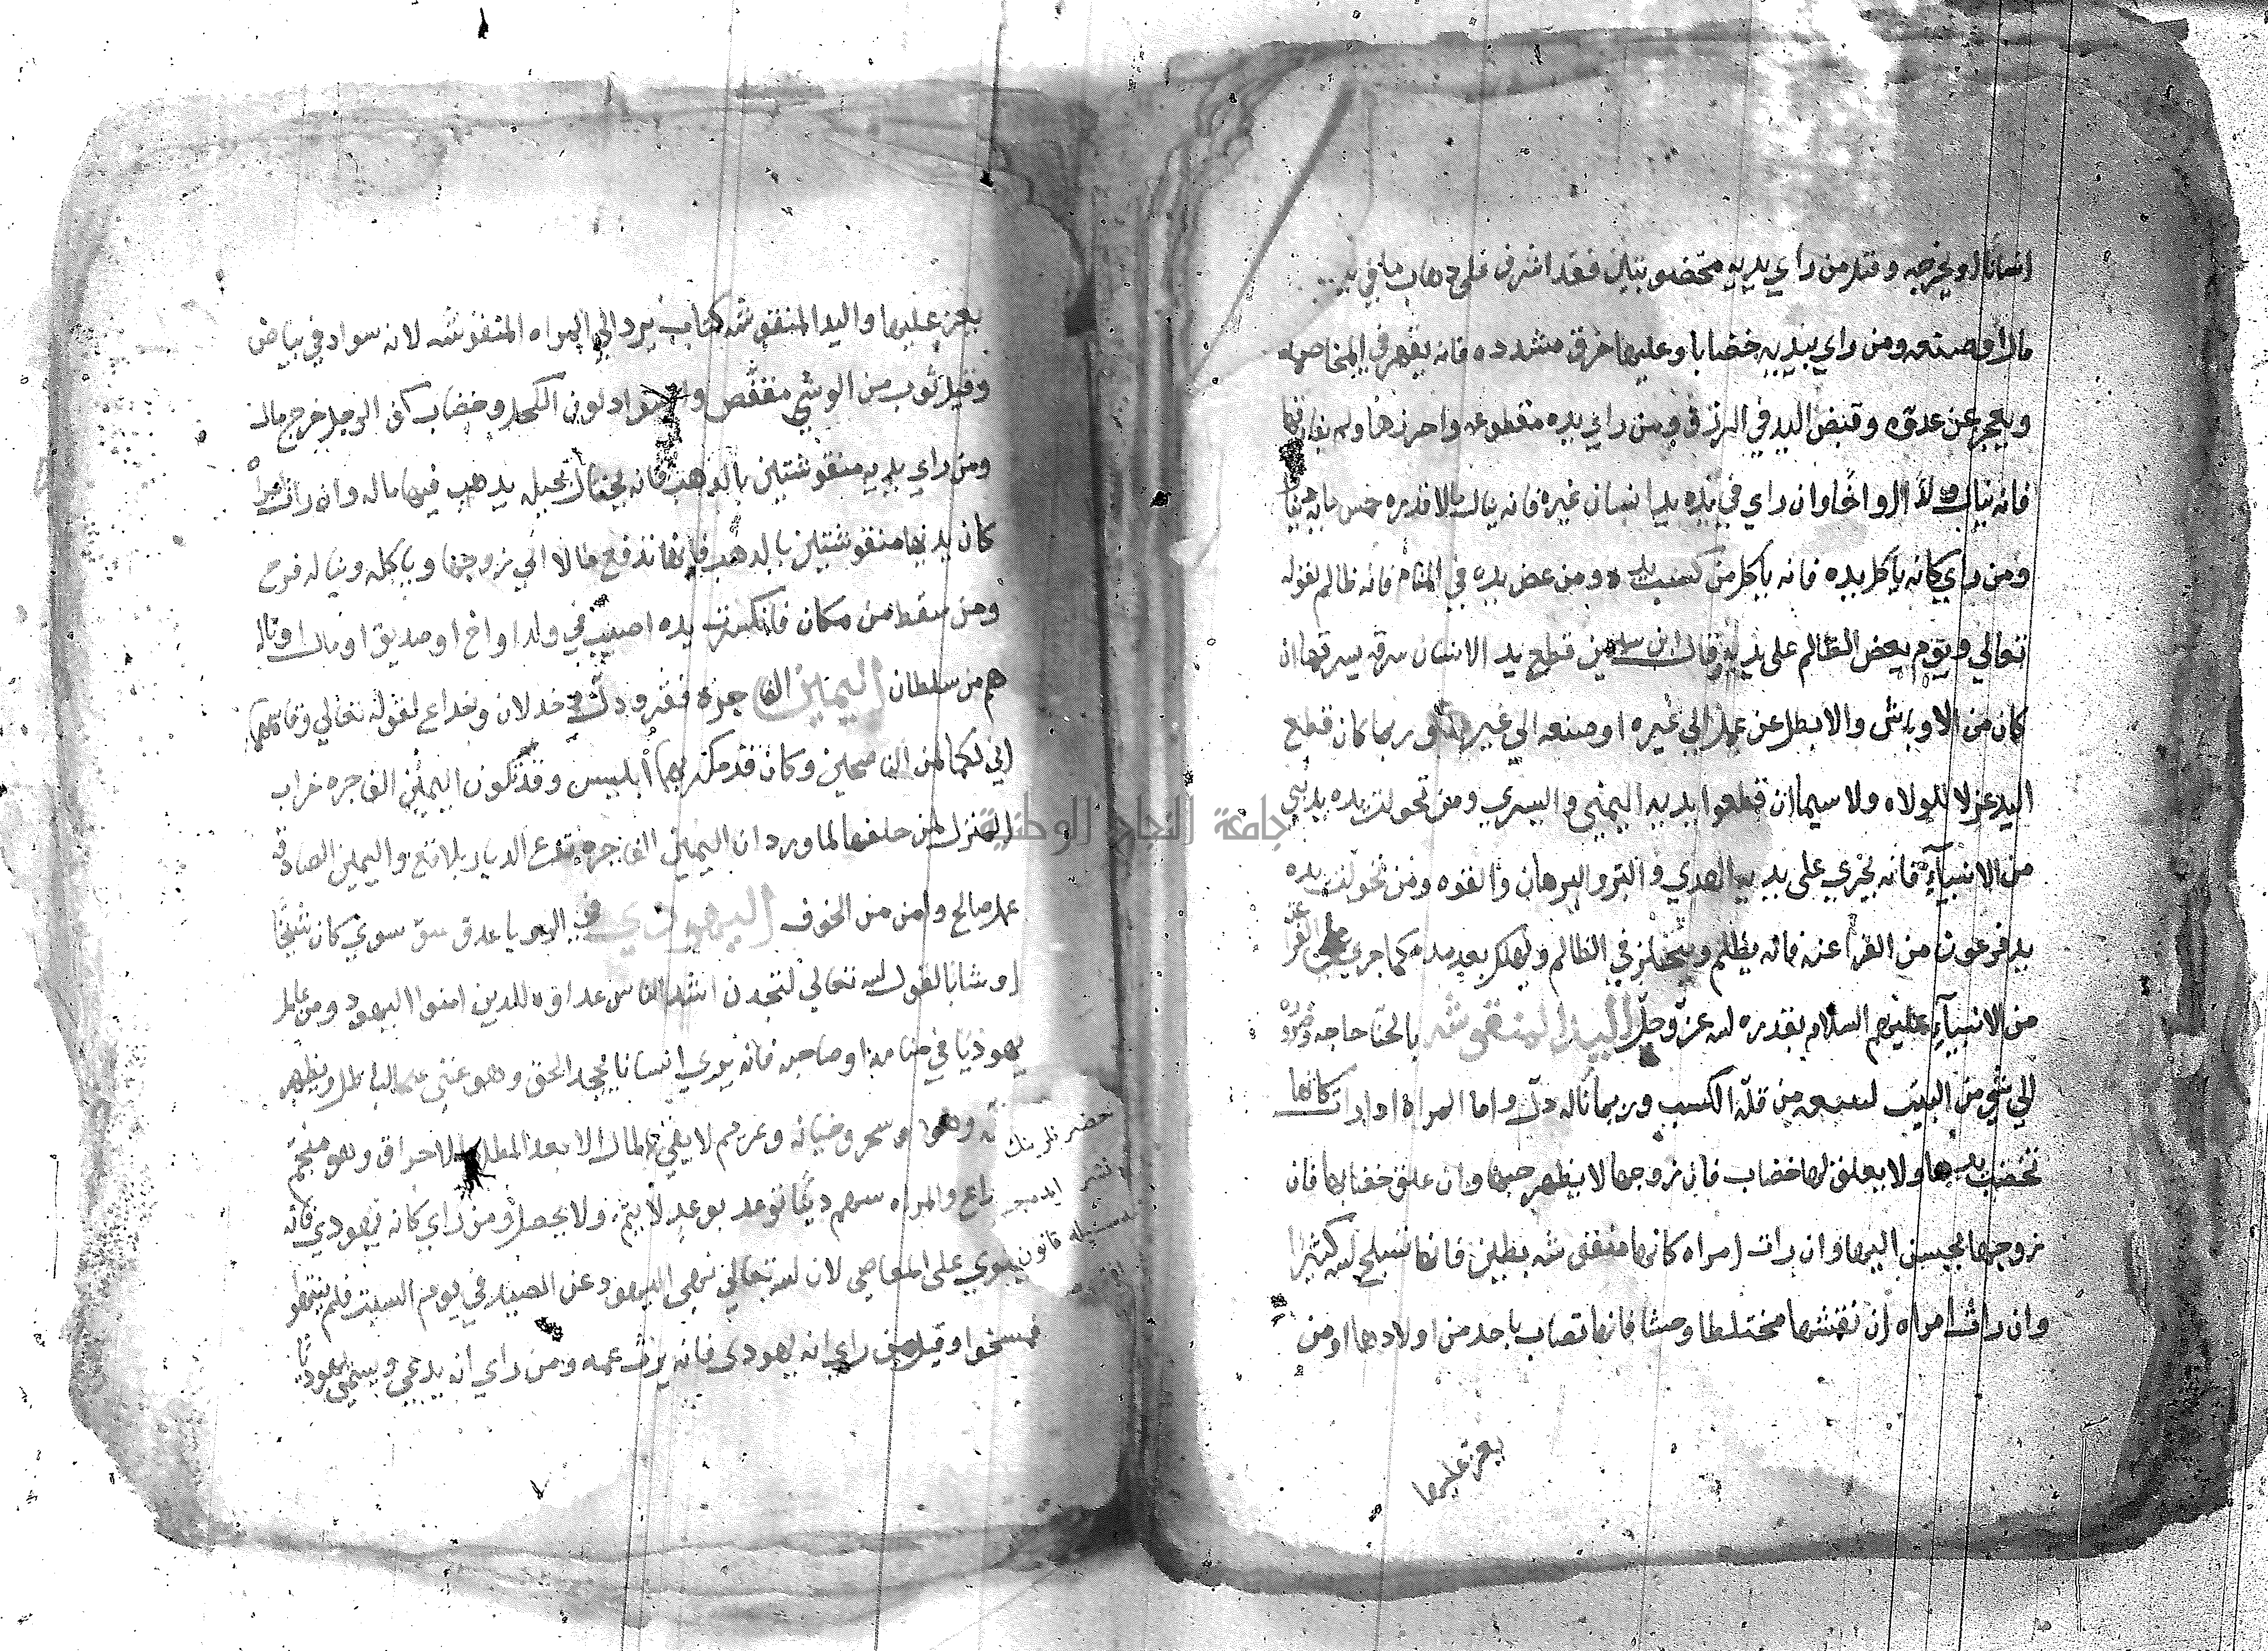 انسانا او يخرجه وقيل من راي يديه مخضوبتين فقد اشرف على دهاب ما في يده
مالا او صنعه ومن راي بيديه خضابا وعليها خرق مشدده فانه يقهر في المخاصمه
ويعجز عن عدوه وقبض اليد في الرزق ومن راي يده مقطوعه واحرزها ولم يفارقها
فانه ينال ولدا او اخا وان راي في يده يد انسان غيره فانه ينال مالا قدره خمس مايه
ومن راي كانه ياكل يده فانه ياكل من كسب يده ومن عض يده في المنام فانه ظالم لقوله
تعالي ويوم يعض الظالم على يديه وقال ابن سيرين قطع يد الانسان سرقه يسرقها ان
كان من الاوباش والا بطل عن عمله الى غيره او صنعه الي غيرها وربما كان قطع
اليد عزلا للولاه ولا سيما ان قطعوا يديه اليمني واليسري ومن تحولت يده يد نبي
من الانبيآء فانه يجري على يديه الهدي والبر والبرهان والقوه ومن تحولت يده
يد فرعون من الفراعنه فانه يظلم في الظالم ويهلك بعد مده كما جري على
من الانبيآء عليهم السلام بقدره الله عز وجل اليد المنقوشه بالحنا حاجه
الي شي من البيت لسعه من قله الكسب وربما ناله دل واما المراه اذا رات كانها
تخضب يديها ولا يعلق لها خضاب فان زوجها لا يظهر حبها وان علق خضابها فان
زوجها يحسن اليها وان رات امراه كانها منقوشه بطين فانها تسبح الله كثيرا
وان رات امراه ان نقشها مختلطا وحشا فانها تصاب باحد من اولادها او من
يعز عليها
يعز عليها واليد المنقوشه كتاب يرد الي المراه المنقوشه لانه سواد في بياض
وقيل ثوب من الوشي مققص لون الكحل وخضاب كف الرجل خرج ماله
ومن راي يديه منقوشتين بالدهب فانه يحتال بحيله يدهب فيها ماله وان رات امراه
كان يديها منقوشتين بالدهب فانها تدفع مالا الي زوجها وياكله ويناله فرح
ومن سقط من مكان فانكسرت يده اصيب في ولد او اخ او صديق او مال او ناله
هم من سلطان اليمين الفاجره فقر ودل وخدلان وخداع لقوله تعالي وقاسمهما
اني لكما لمن الناصحين وكان قد مكر بهما ابليس وقد تكون اليمين الفاجره خراب
المنزل لمن حلفها لما ورد ان اليمين الفاجره تدع الديار بلاقع واليمين الصادقه
عمل صالح وامن من الخوف اليهودي في الرويا عدو سوي كان شيخا
او شابا لقول الله تعالي لتجدن اشد الناس عداوه للدين امنوا اليهود ومن عامل
يهوديا في منامه او صاحبه فانه يري انسانا يجحد الحق وهو غني عنه الباطل ويظهر
وهو سحر وخيانه وعزم لا يفي بالمال الا بعد المطل والاحتراق وهو منجم
والمراه سهم دينا توعد بوعد لا يتم ولا يحصل ومن راي كانه يهودي فانه
يجري على المعاصي لان الله تعالي نهي اليهود عن الصيد في يوم السبت فلم ينتهوا
فمسخوا وقيل من راي انه يهودي فانه يرث عمه ومن راي انه يدعي ويسمي يهوديا
جامعة النجاح الوطنية